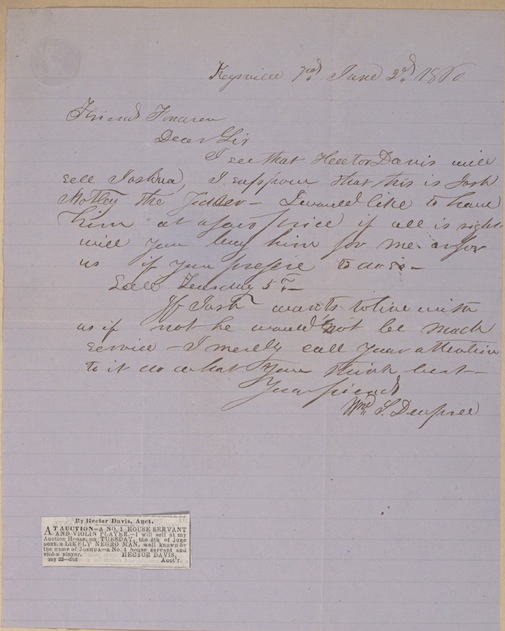 Keysville Va. June 2nd. 1860
Friend
Dear Sir
I see that Hector Davis will
sell Joshua, I suppose that this is Josh
Motley the Fiddler - I would like to have
him at a fair price if all is right
will you buy him for me or for
us if you prefere to do so -
Sale Tuesday 5th. -
If Josh wants to live with
us if not he would not be much
service - I merely call your attention
to it do what you think best -
Your friend
Wm. S. Dupree
By Hector Davis, Auct.
AT AUCTION—A NO. 1 HOUSE SERVANT
AND VIOLIN PLAYER.—I will sell at my
Auction House, on TUESDAY, the 5th of June
next, a LIKELY NEGRO MAN, well known by
the name of Joshua—a No. 1 house servant and
violin player. HECTOR DAVIS,
my 23— Auct'r.